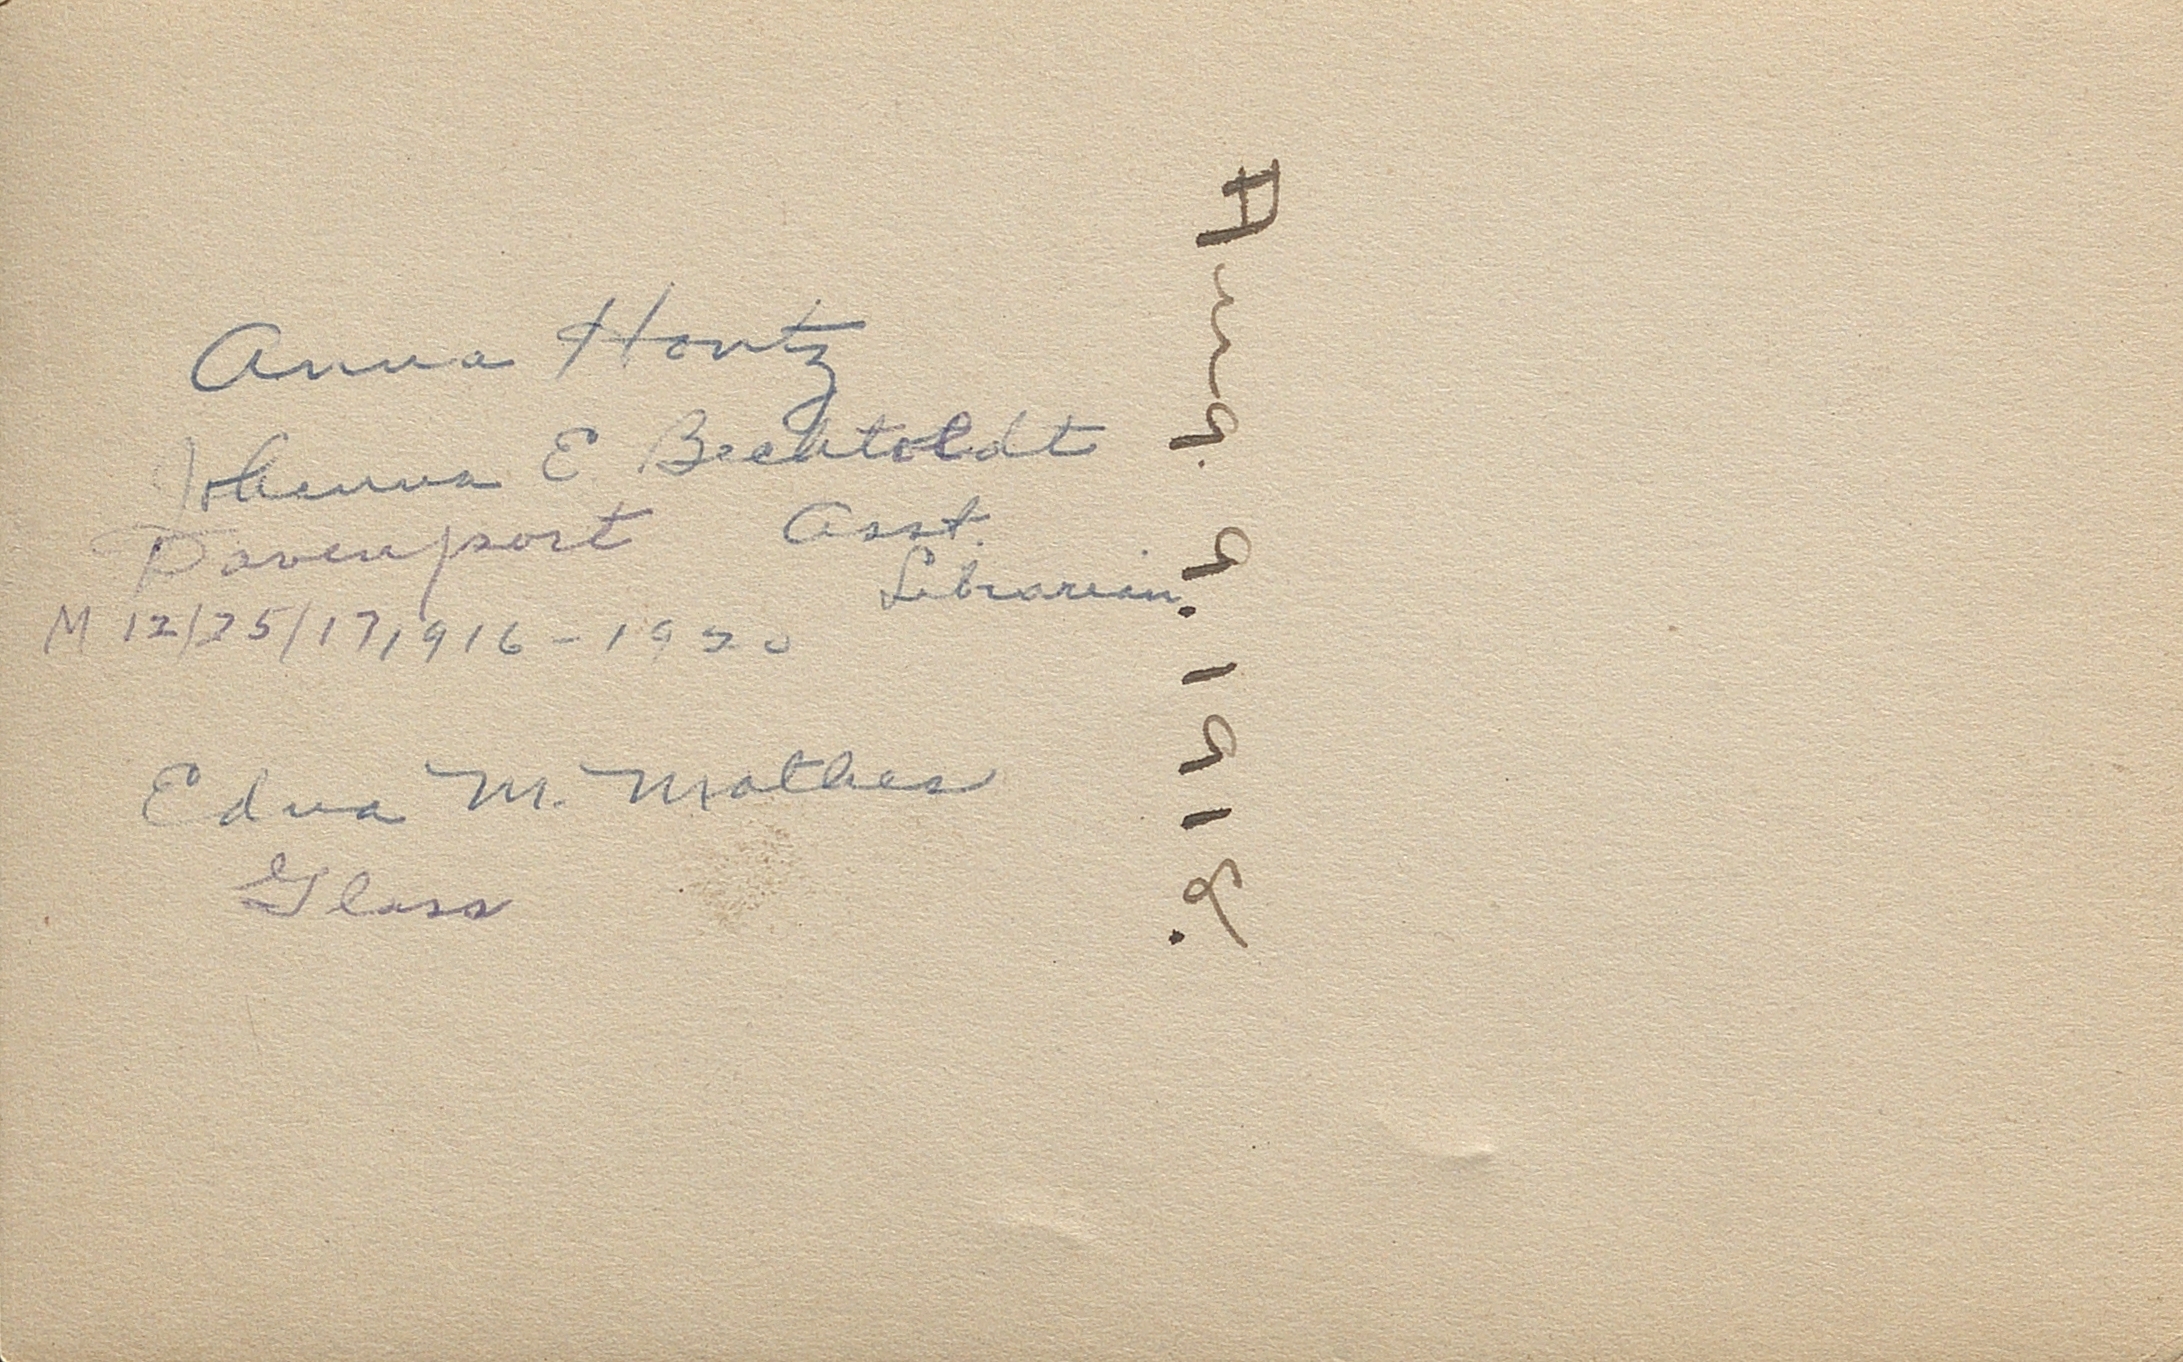 Anna Hontz
Johanna E. Bechtoldt
Davenport Asst.
Librarian
M 12/25/17 1916-1920
Edna M. Mathes
Glass
Aug. 9. 1918.